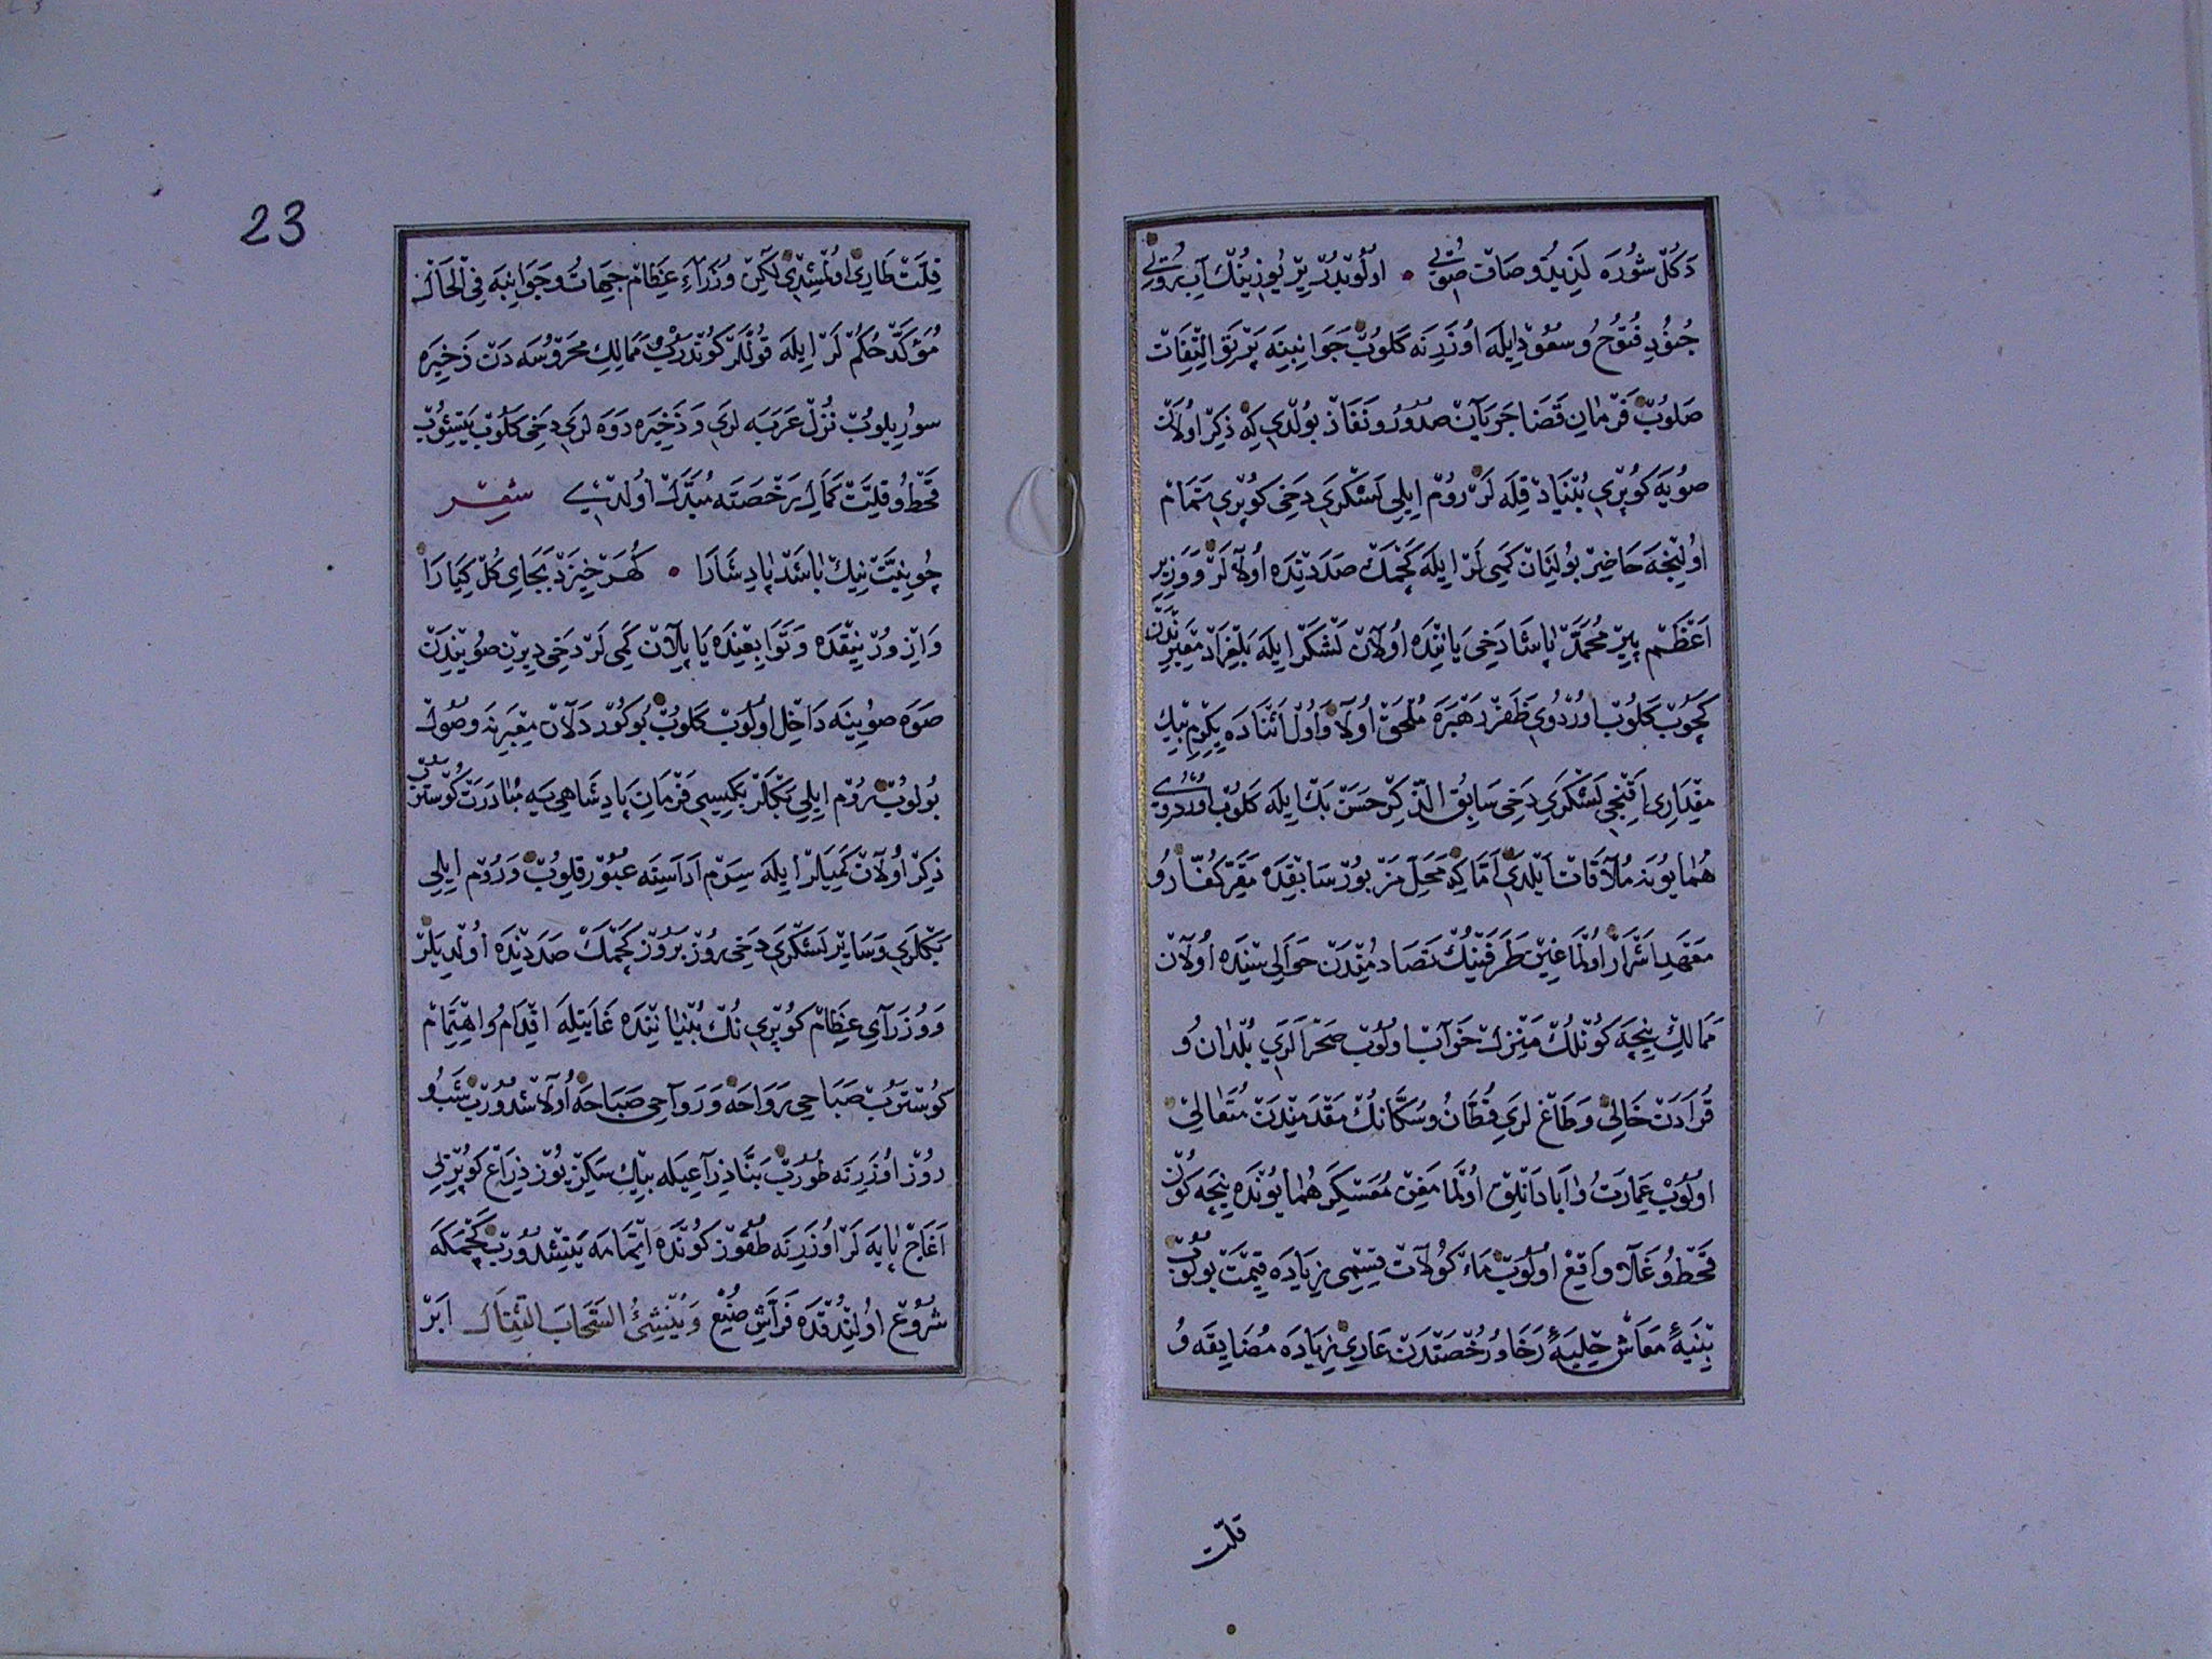 دكل شوره لذيذ و صاف صويى • اولوبدر ير يوزينك آب روى
جنود فتوح و سعود ايله اوزرنه كلوب جوانبينه پرتو التفات
صلوب فرمان قضا جريان صدور و نفاذ بولدى كه ذكر اولان
صويه كوپرى بنياد قيله لر روم ايلى لشكرى دخى كوپرى تمام
اولينجه حاضر بولنان كمى لر ايله كچمك صددنده اولالر و وزير
اعظم پير محمد پاشا دخى ياننده اولان لشكر ايله بلغراد معبرندن
كچوب كلوب اوردوى ظفر رهبره ملحق اولا و اول اثناده يكرمى بيك
مقدارى اقنجى لشكرى دخى سابق الذكر حسن بك ايله كلوب اوردوى
همايونه ملاقات ايلدى اما كه محل مزبور سابقده مقر كفار و
معهد اشرار اولماغين طرفينك تصادمندن حوالى سنده اولان
ممالك نيجه كونلك منزل خراب اولوب صحرالرى بلدان و
قرادن خالى و طاغ لرى قطان و سكانك مقدمندن متعالى
اولوب عمارت و آبادانلق اولمامغن معسكر همايونده نيجه كون
قحط و غلا واقع اولوب ماء كولات قسمى زياده قيمت بولوب
بنيهٔ معاش حليهٔ رخا و رخصتدن عارى زياده مضايقه و
قلت
23
قلت طارى اولمشدى لكن وزراء عظام جهات و جوانبه فى الحال
مؤكد حكم لر ايله قوللر كوندروب ممالك محروسه دن ذخيره
سوريلوب نزل عربه لرى و ذخيره دوه لرى دخى كلوب يتشوب
قحط و قلت كمال رخصته مبدل اولدى شعر
چو نيت نيك باشد پادشارا • كهر خيزد بجاى كل كيارا
و ازوورنيقده و توابعنده ياپلان كمى لر دخى ديرن صويندن
صوه صوينه داخل اولوب كلوب بو كوردلان معبرنه وصول
بولوب روم ايلى بكلر بكيسى فرمان پادشاهى يه مبادرت كوستروب
ذكر اولان كميلر ايله سرم اداسنه عبور قلوب و روم ايلى
بكلرى و ساير لشكرى دخى روز بروز كچمك صددنده اولديلر
و وزراى عظام كوپرى نك بنياننده غايتله اقدام و اهتمام
كوستروب صباحى رواحه و رواحى صباحه اولاشدورب شب و
روز اوزرنه طورب بنا ذراعيله بيك سكز يوز ذراع كوپرىلى
اغاج پايه لر اوزرنه طقوز كونده اتمامه يتشدورب كچمكه
شروع اولندقده فراش صنع وينشئ السحاب الثقال ابر